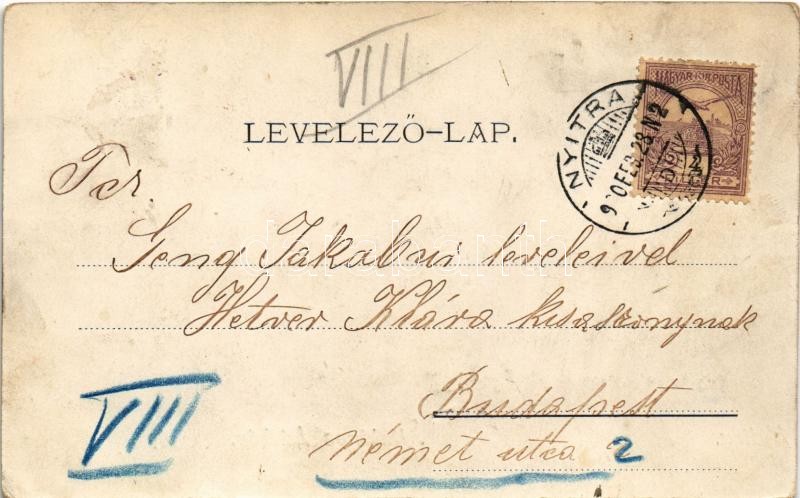 VIII
MAGYAR KIR. POSTA
NYITRA
900 FEB. 28 N2
LEVELEZŐ-LAP.
Tcr.
Geng Jakabné leveleivel
Hetver Klára kisasszonynak
Budapest
VIII
Német utca 2